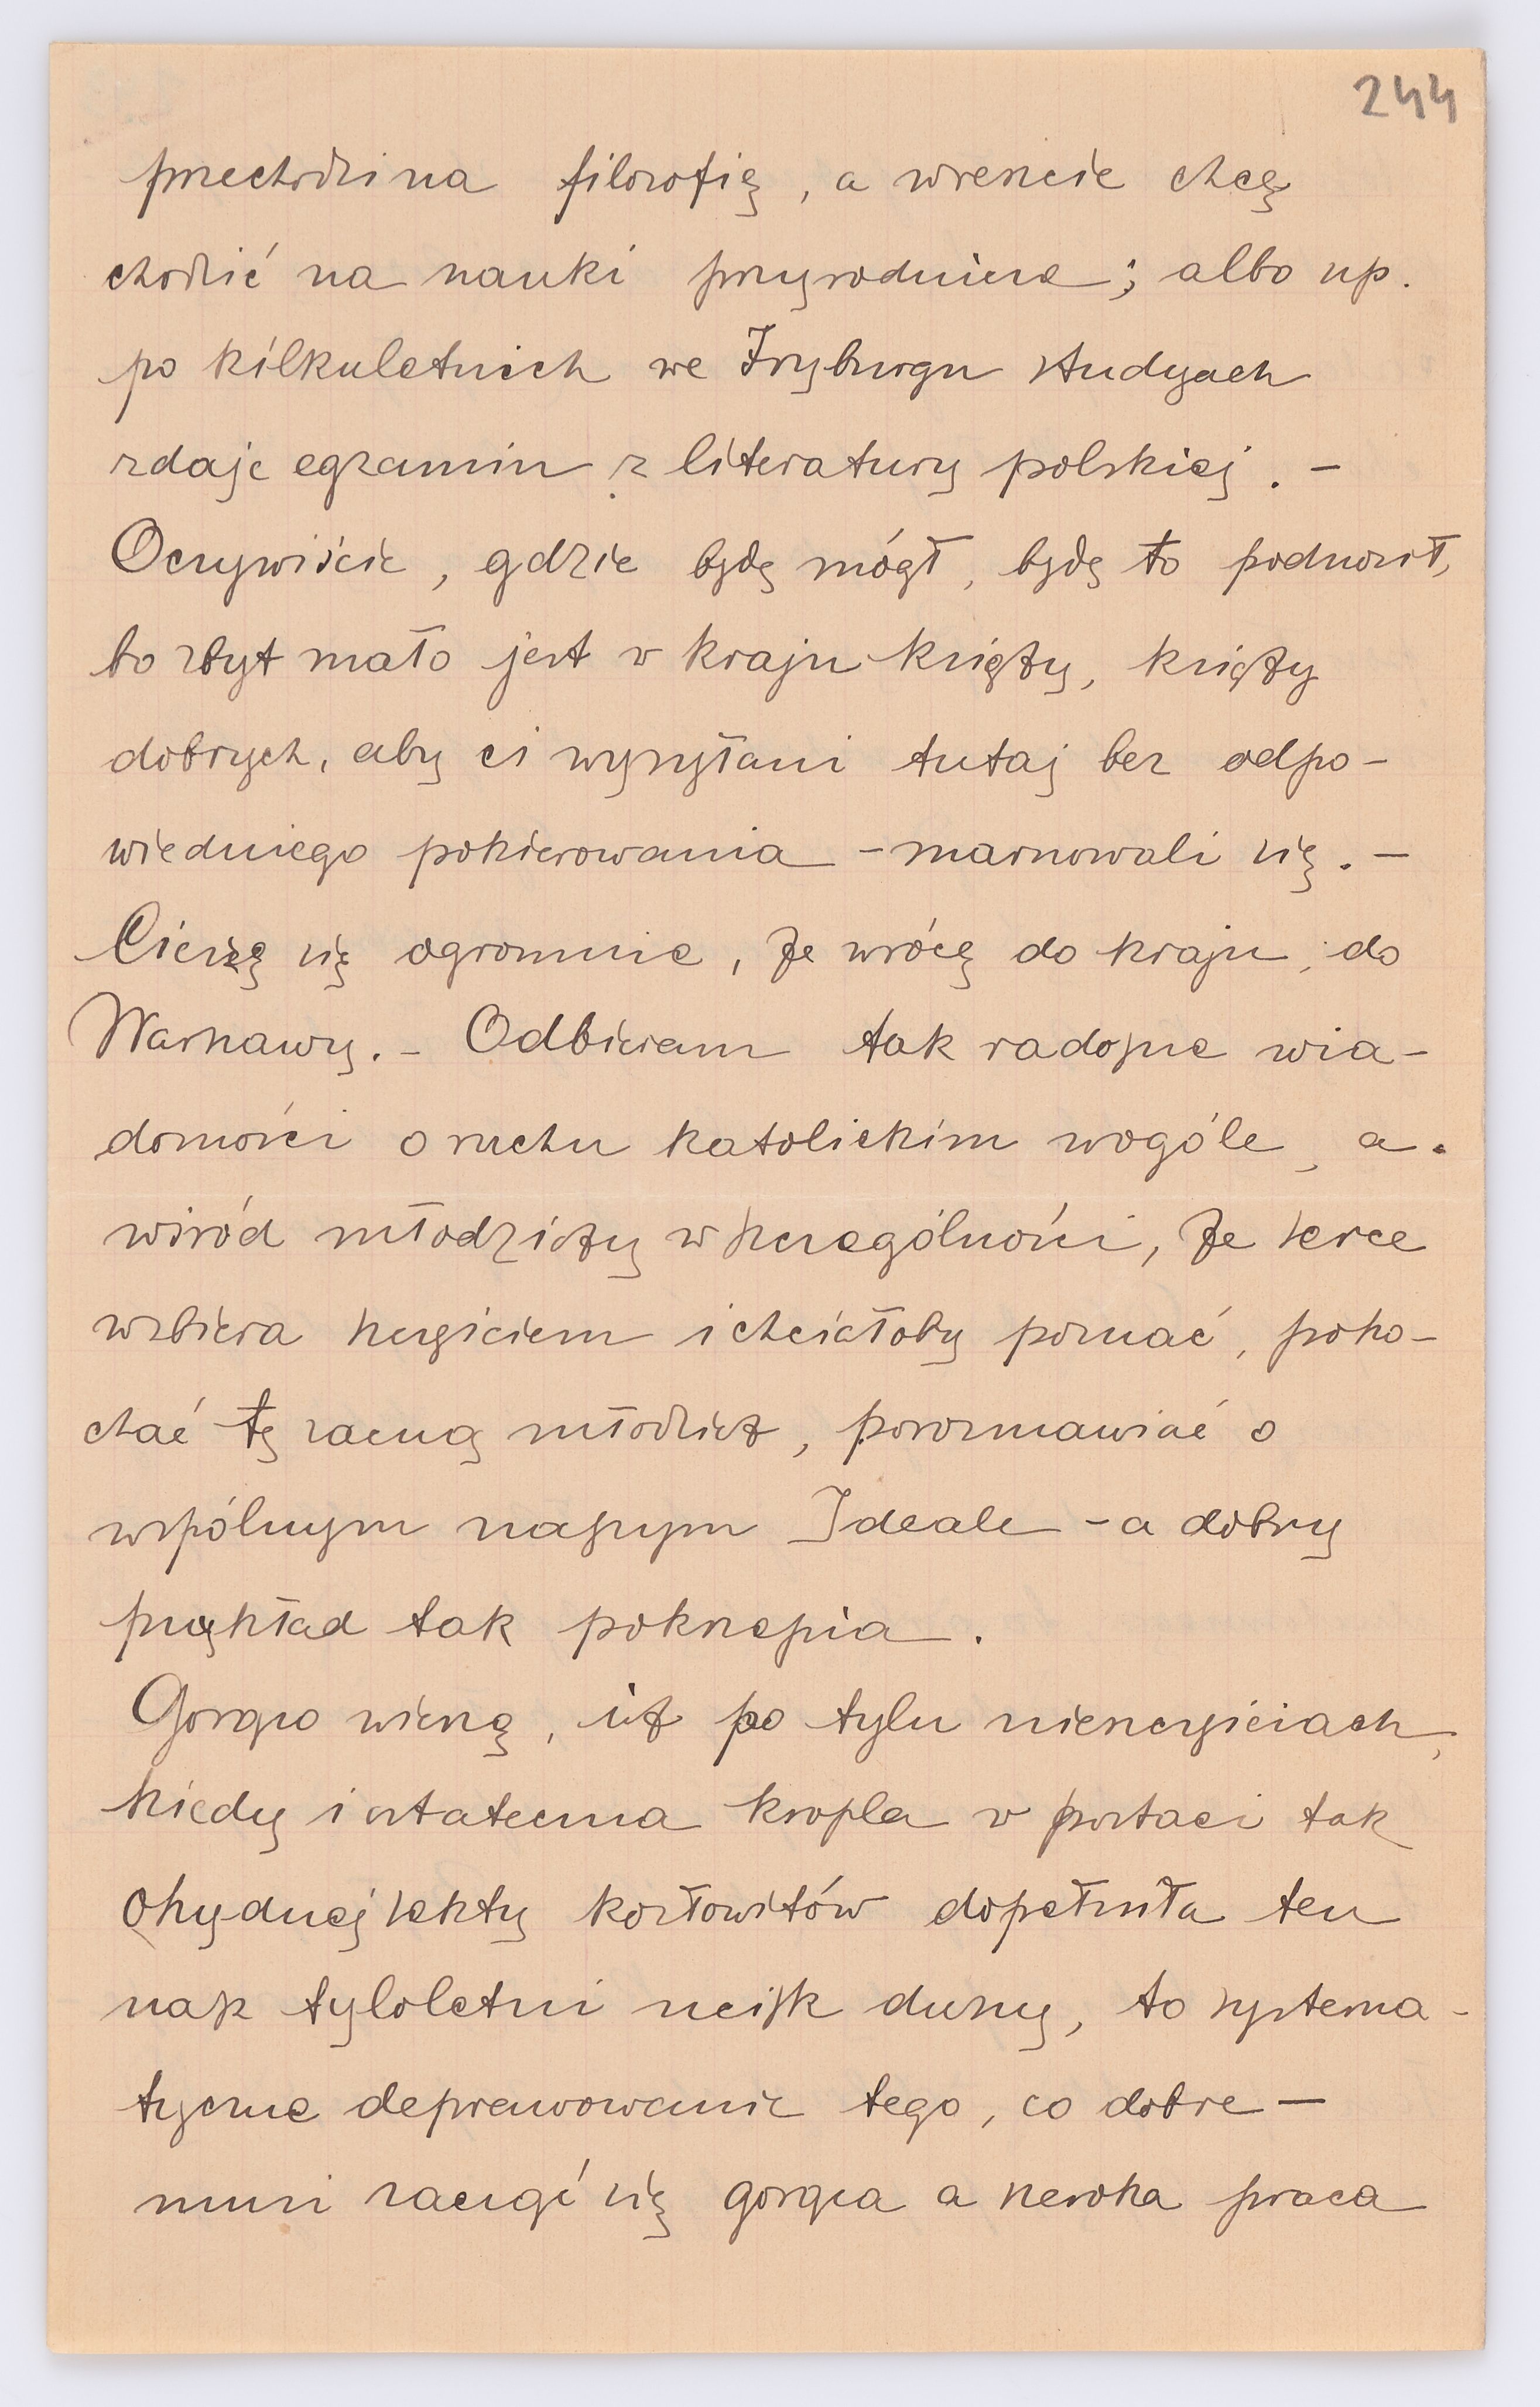 244
przechodzi na filozofię, a wreszcie chcę
chodzić na nauki przyrodnicze; albo np.
po kilkuletnich we Fryburgu studyach
zdaje egzamin z literatury polskiej. –
Oczywiście, gdzie będę mógł, będę to podnosił,
bo zbyt mało jest w kraju księży, księży
dobrych, aby ci wysyłani tutaj bez odpo-
wiedniego pokierowania – marnowali się. –
Cieszę się ogromnie, że wrócę do kraju, do
Warszawy. – Odbieram tak radosne wia-
domości o ruchu katolickim wogóle, a
wśród młodzieży w szczególności, że serce
wzbiera szczęściem i chciałoby poznać, poko-
chać tę zacną młodzież, porozmawiać o
wspólnym naszym Ideale – a dobry
przykład tak pokrzepia.
Gorąco wierzę, iż po tylu nieszczęściach,
kiedy i ostateczna kropla w postaci tak
ohydnej sekty kozłowitów dopełniła ten
nasz tyloletni ucisk duszy, to systema-
tyczne deprawowanie tego, co dobre –
musi zacząć się gorąca a szeroka praca